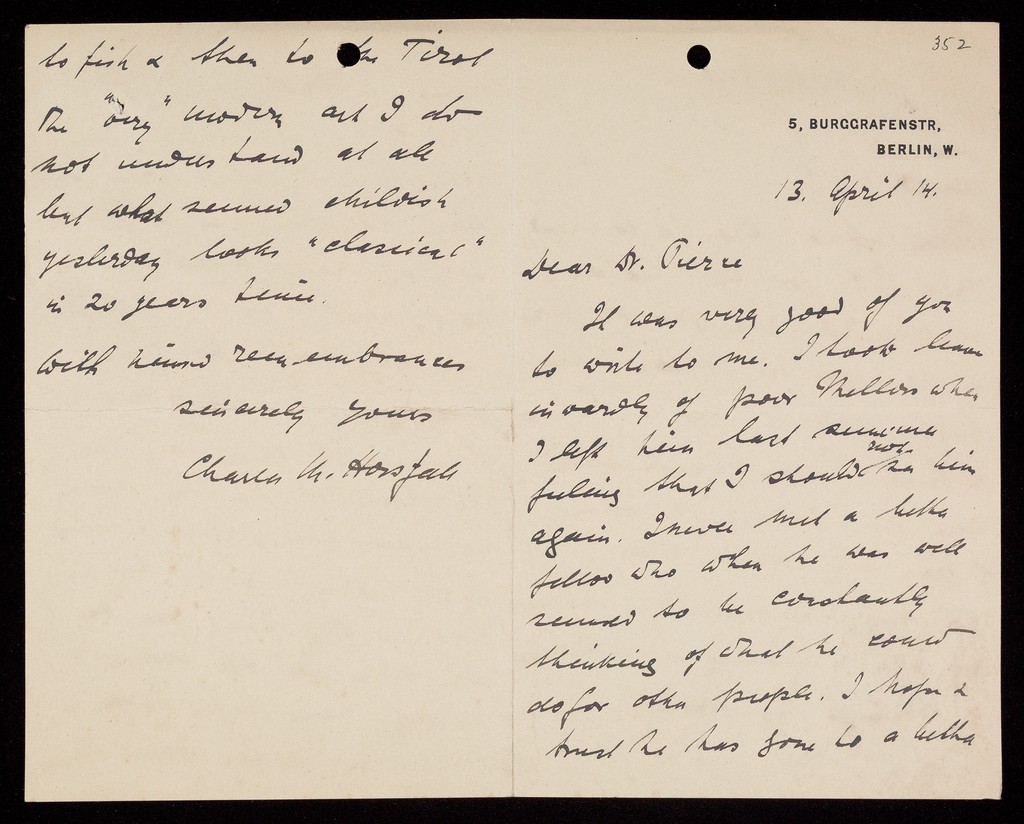 352
5, BURGGRAFENSTR,
BERLIN, W.
13. April 14.
Dear Dr. Pierce
It was very good of you
to write to me. I took leave
inwardly of poor Mellors when
I left him last summer
feeling that I should not see him
again. I never met a better
fellow who when he was well
seemed to be constantly
thinking of what he could
do for other people. I hope &
trust he has gone to a better
to fish & then to the Tirol
The "very" modern art I do
not understand at all
but what seemed childish
yesterday looks "classical"
in 20 years time.
With kind remembrances
sincerely yours
Charles M. Horsfall